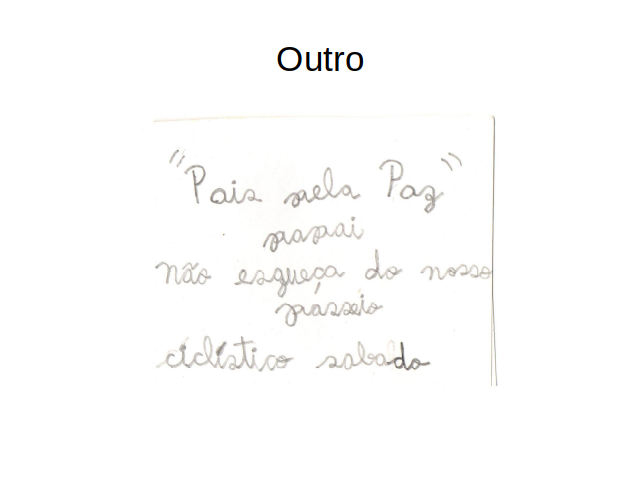 Outro
"Pais pela Paz"
papai
não esqueça do nosso
pásseio
cíclístico sabado